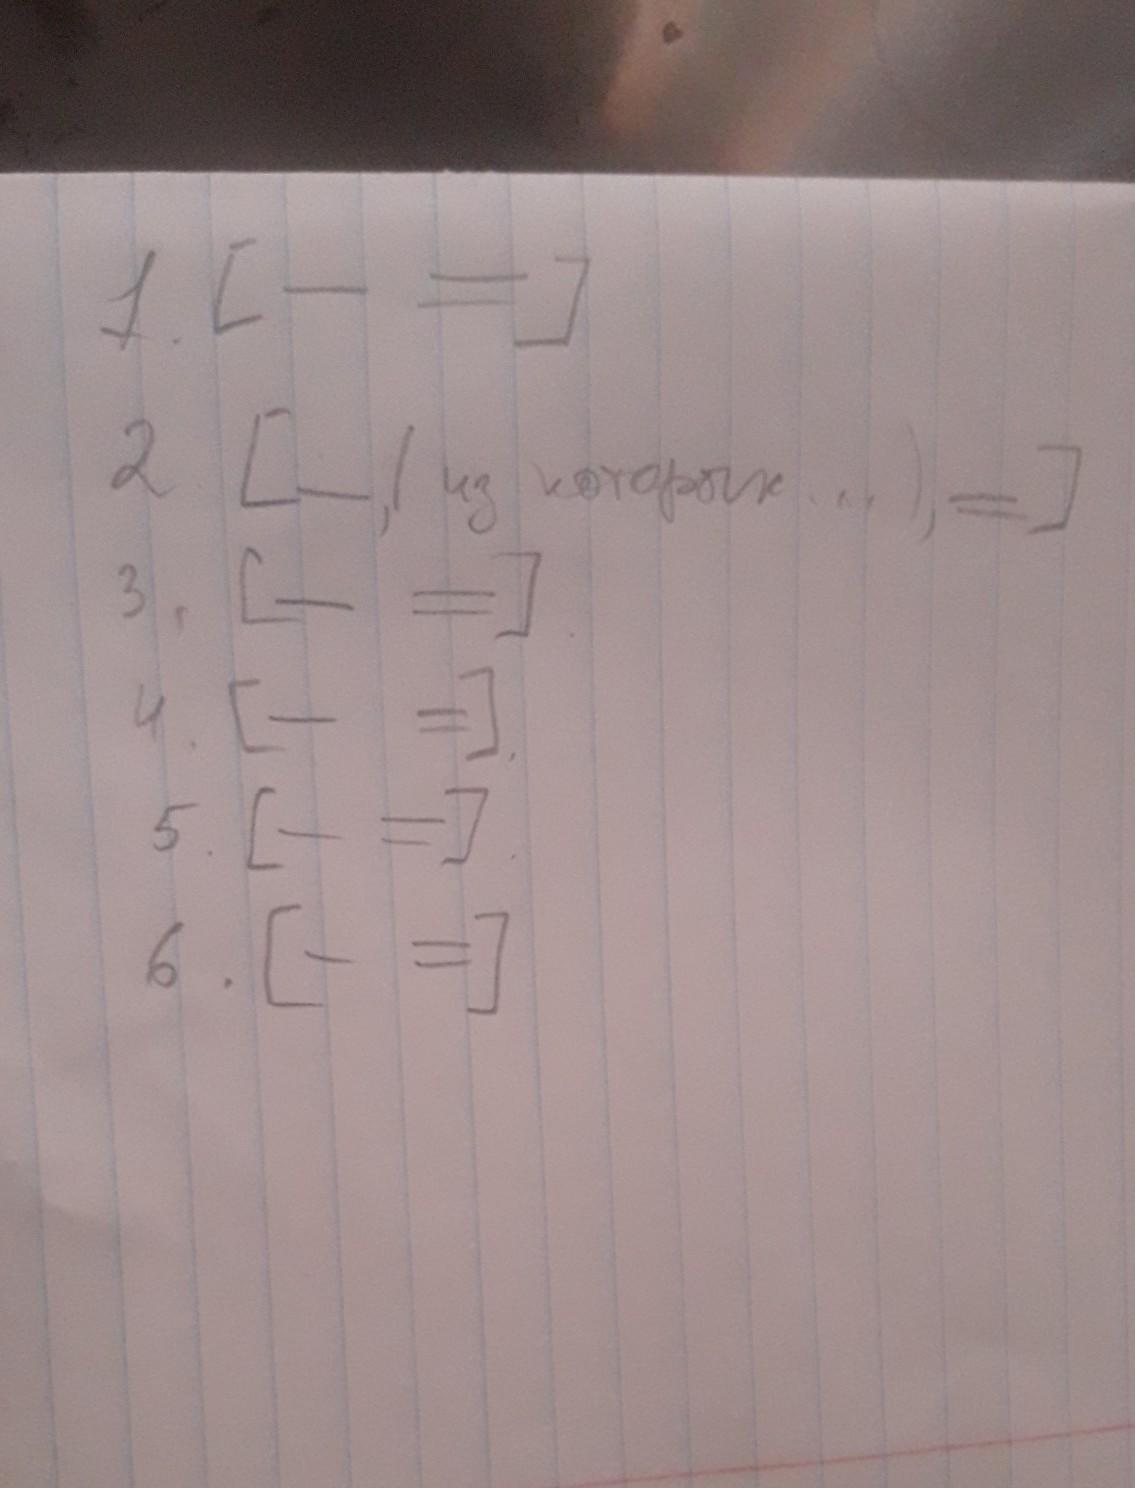 1. [— =]
2. [—, (из которых ...), =]
3. [— =].
4. [— =].
5. [— =].
6. [— =]